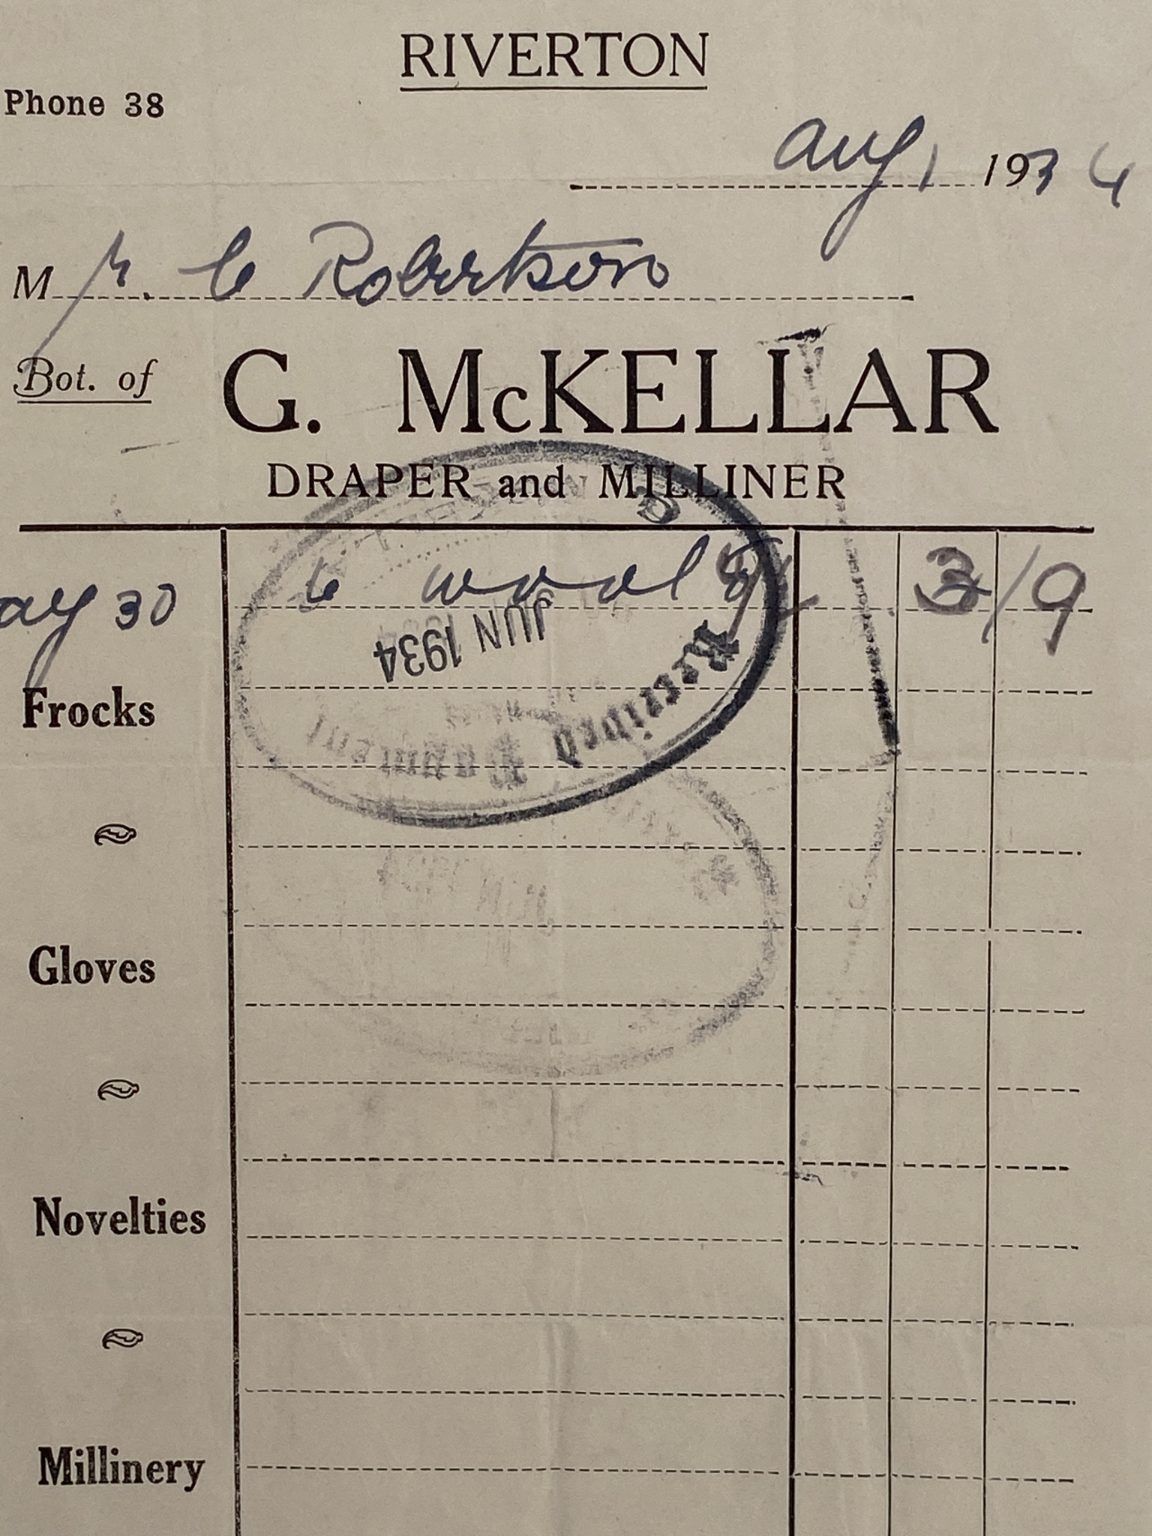 RIVERTON
Phone 38
Aug 1 1934
Mr. C Robertson
Bot. of G. McKELLAR
DRAPER and MILLINER
ay 30 6 wool 3/9
JUN 1934
Received Payment
Frocks
Gloves
JUN 1934
Novelties
Millinery